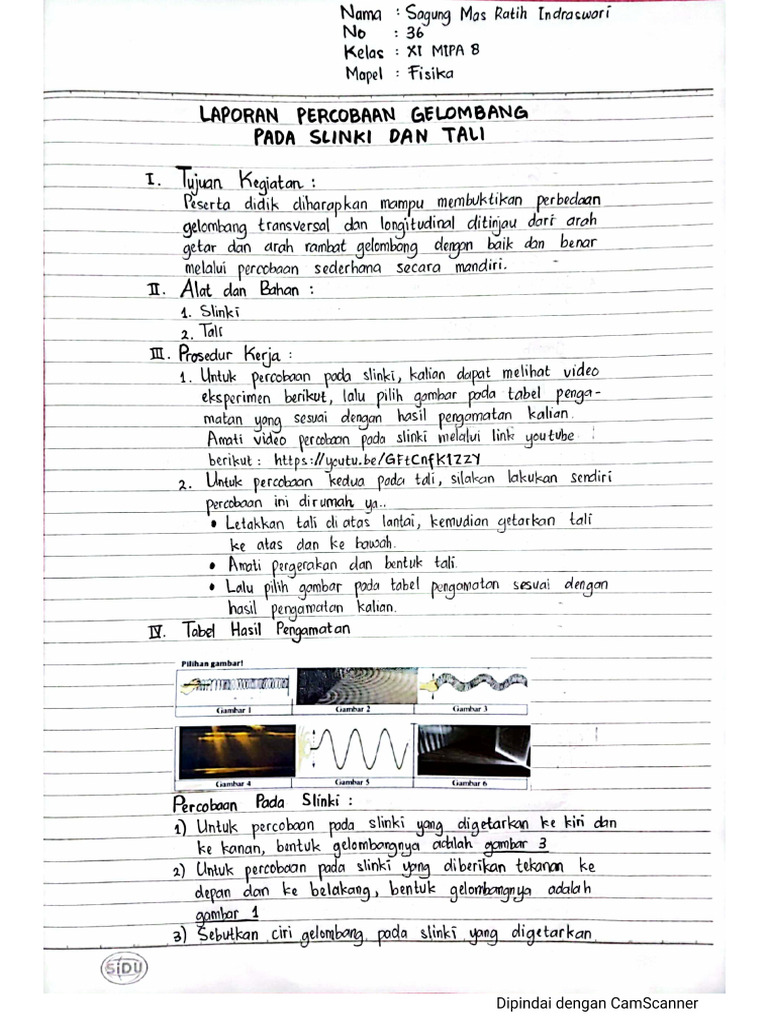 Nama : Sagung Mas Ratih Indraswari
No : 36
Kelas : XI MIPA 8
Mapel : Fisika
LAPORAN PERCOBAAN GELOMBANG
PADA SLINKI DAN TALI
I. Tujuan Kegiatan :
Peserta didik diharapkan mampu membuktikan perbedaan
gelombang transversal dan longitudinal ditinjau dari arah
getar dan arah rambat gelombang dengan baik dan benar
melalui percobaan sederhana secara mandiri.
II. Alat dan Bahan :
1. Slinki
2. Tali
III. Prosedur Kerja :
1. Untuk percobaan pada slinki, kalian dapat melihat video
eksperimen berikut, lalu pilih gambar pada tabel penga-
matan yang sesuai dengan hasil pengamatan kalian.
Amati video percobaan pada slinki melalui link youtube
berikut : https://youtu.be/GFtCnfK1ZZY
2. Untuk percobaan kedua pada tali, silakan lakukan sendiri
percobaan ini dirumah ya..
• Letakkan tali di atas lantai, kemudian getarkan tali
ke atas dan ke bawah.
• Amati pergerakan dan bentuk tali.
• Lalu pilih gambar pada tabel pengamatan sesuai dengan
hasil pengamatan kalian.
IV. Tabel Hasil Pengamatan
Pilihan gambar!
Gambar 1 Gambar 2 Gambar 3
Gambar 4 Gambar 5 Gambar 6
Percobaan Pada Slinki :
1) Untuk percobaan pada slinki yang digetarkan ke kiri dan
ke kanan, bentuk gelombangnya adalah gambar 3
2) Untuk percobaan pada slinki yang diberikan tekanan ke
depan dan ke belakang, bentuk gelombangnya adalah
gambar 1
3) Sebutkan ciri gelombang pada slinki yang digetarkan
SiDU
Dipindai dengan CamScanner